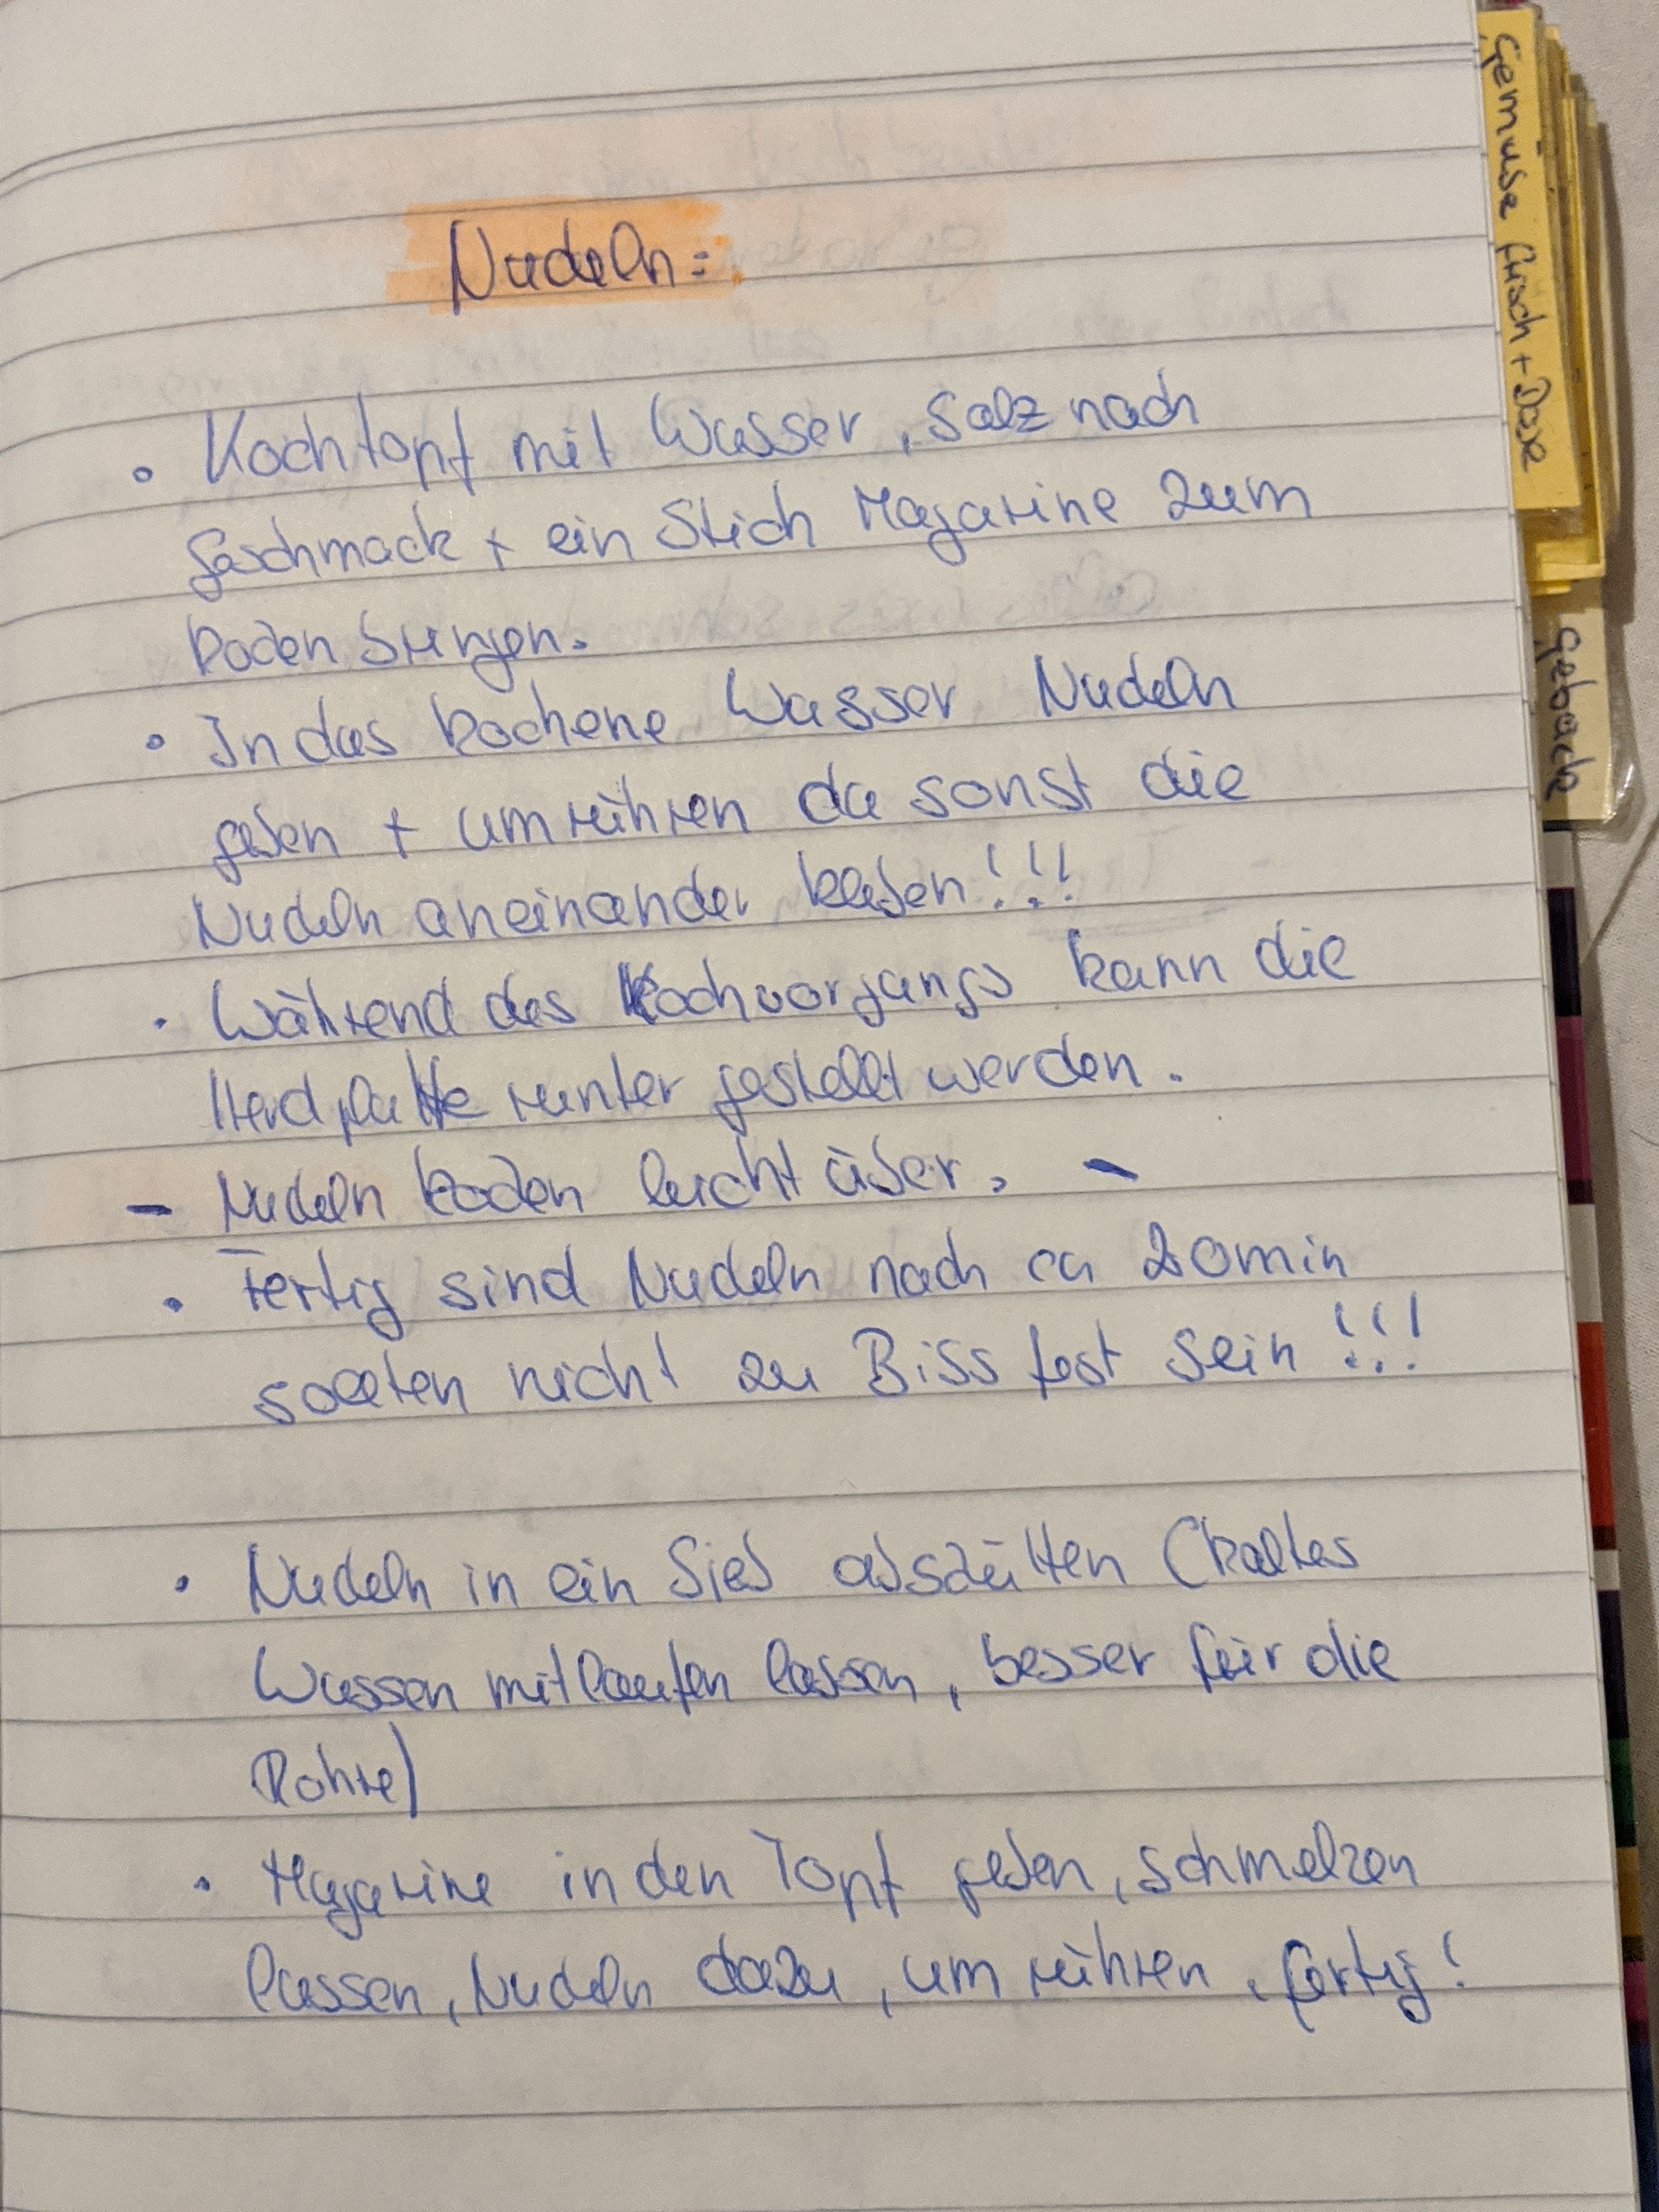 Nudeln:
• Kochtopf mit Wasser, Salz nach
Geschmack + ein Stich Magarine zum
koden bringen.
• In das kochene Wasser Nudeln
geben + umrühren da sonst die
Nudeln aneinander kleben!!!
• Während des Kochvorgangs kann die
Herdplatte runter gestellt werden.
- Nudeln koden leicht über. -
• Fertig sind Nudeln nach ca 20min
sollten nicht zu Biss fest sein!!!
• Nudeln in ein Sieb abschütten (kaltes
Wasser mitlaufen lassen, besser für die
Rohre)
• Magarine in den Topf geben, schmelzen
lassen, Nudeln dazu, um rühren, fertig!
Gemüse frisch + Dose
Gebäck